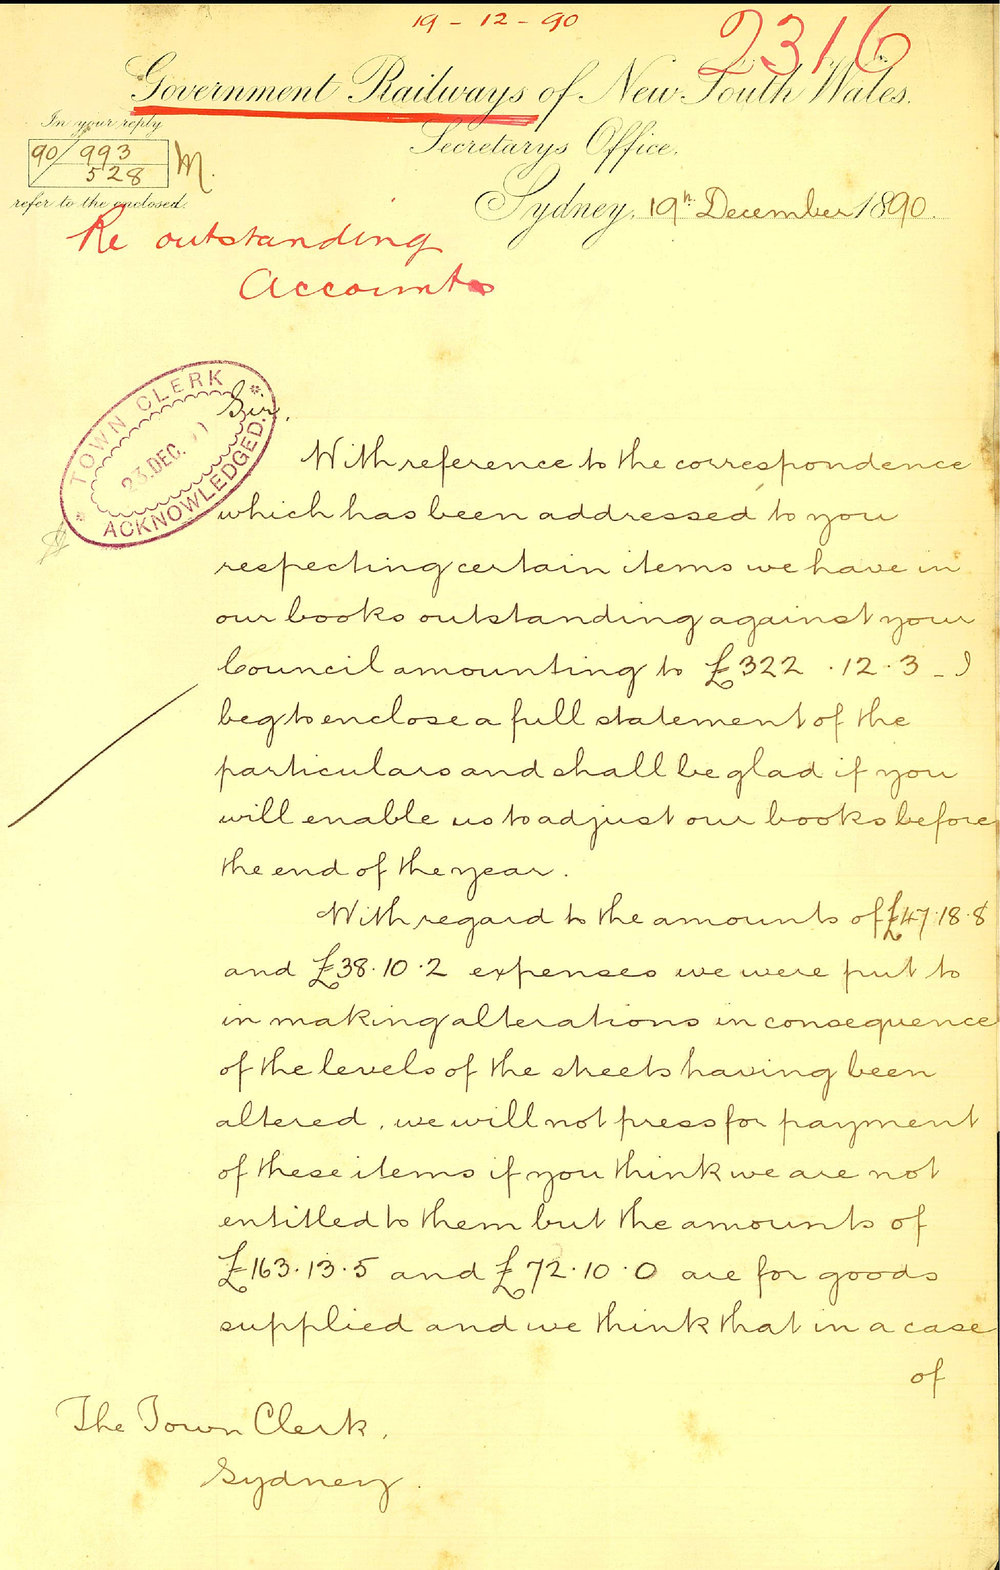 19 - 12 - 90
2316
Government Railways of New South Wales.
In your reply
90/993
528
M.
refer to the enclosed.
Secretarys Office.
Sydney, 19th December 1890.
Re outstanding
Accounts
TOWN CLERK
23. DEC.
ACKNOWLEDGED.
Sir,
With reference to the correspondence
which has been addressed to you
respecting certain items we have in
our books outstanding against your
Council amounting to £322 . 12 . 3 - I
beg to enclose a full statement of the
particulars and shall be glad if you
will enable us to adjust our books before
the end of the year.
With regard to the amounts of £47.18.8
and £38.10.2 expenses we were put to
in making alterations in consequence
of the levels of the streets having been
altered, we will not press for payment
of these items if you think we are not
entitled to them but the amounts of
£163.13.5 and £72.10.0 are for goods
supplied and we think that in a case
of
The Town Clerk,
Sydney.